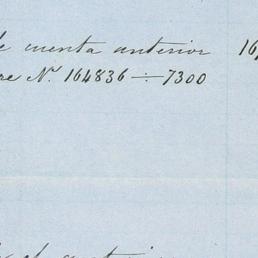 de cuenta anterior 16
re Nº 164836 ÷ 7300